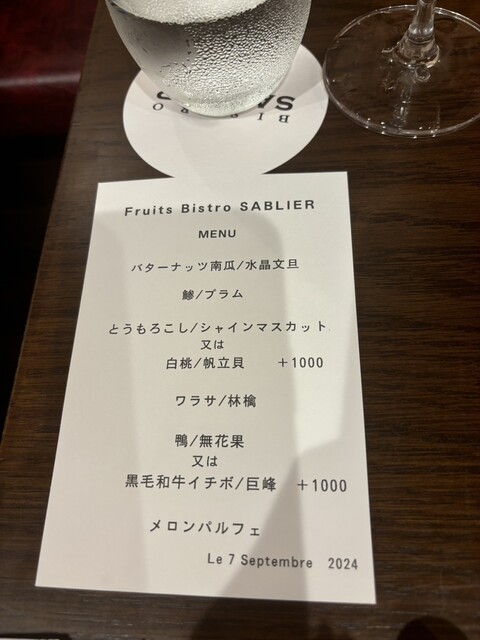 BISTRO
SA
Fruits Bistro SABLIER
MENU
バターナッツ南瓜/水晶文旦
鯵/プラム
とうもろこし/シャインマスカット
又は
白桃/帆立貝 +1000
ワラサ/林檎
鴨/無花果
又は
黒毛和牛イチボ/巨峰 +1000
メロンパルフェ
Le 7 Septembre 2024